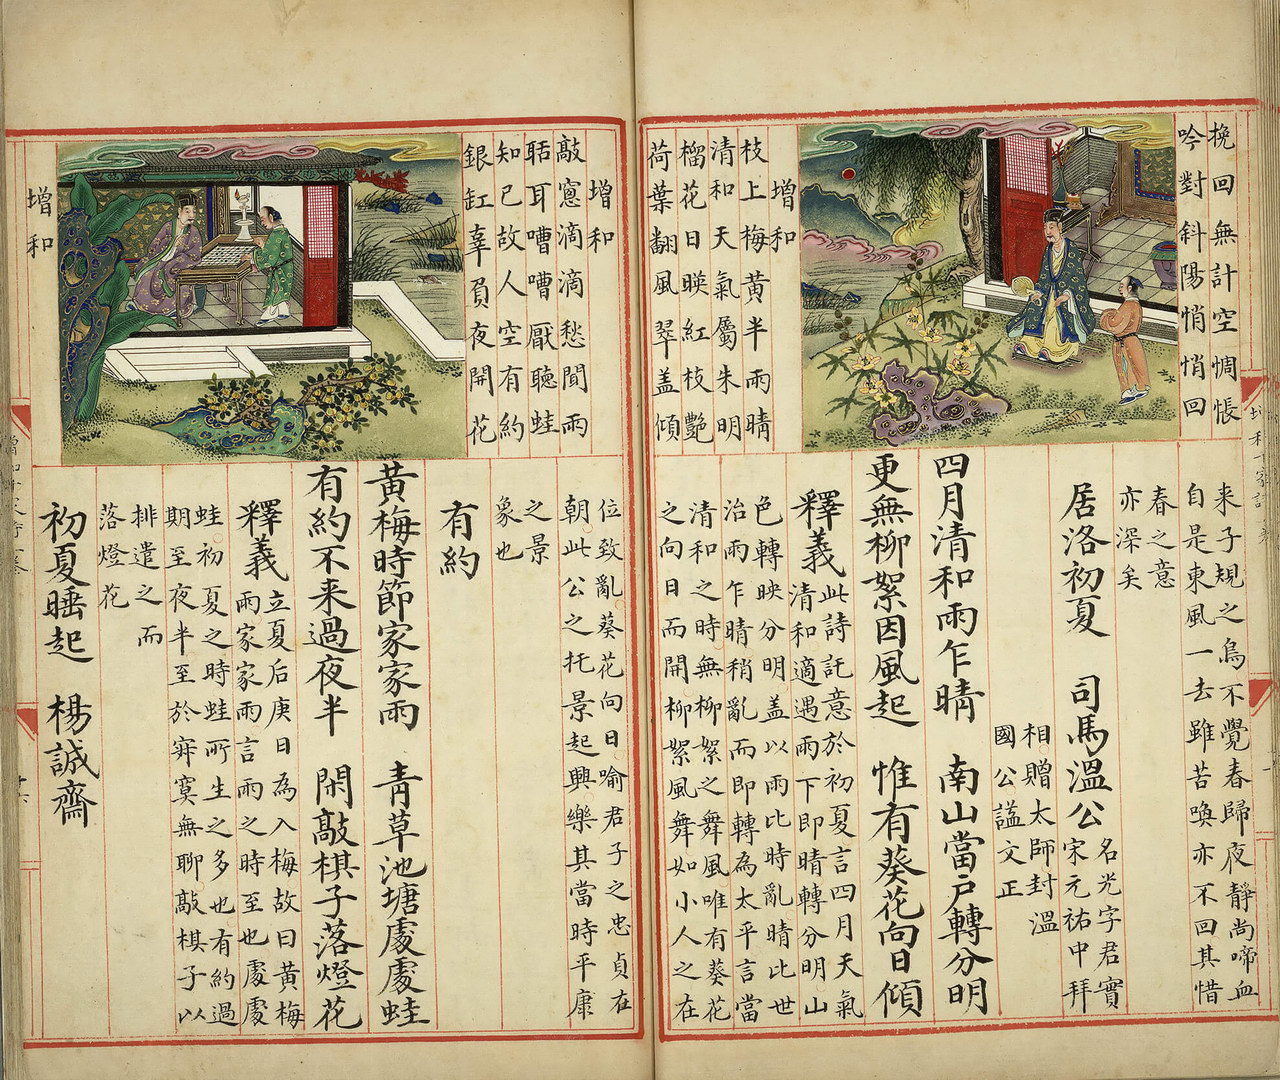 挽回無計空惆悵
吟對斜陽悄悄回
增和
枝上梅黃半雨晴
清和天氣屬朱明
榴花日暎紅枝艷
荷葉翻風翠盖傾
来子規之鳥不覺春歸夜靜尚啼血
自是東風一去雖苦喚亦不回其惜
春之意
亦深矣
居洛初夏 司馬溫公
名光字君實
宋元祐中拜
相贈太師封溫
國公謚文正
四月清和雨乍晴 南山當户轉分明
更無柳絮因風起 惟有葵花向日傾
釋義
此詩託意於初夏言四月天氣
清和適遇雨下即晴轉分明山
色轉映分明盖以雨比時亂晴比世
治雨乍晴稍亂而即轉為太平言當
清和之時無柳絮之舞風唯有葵花
之向日而開柳絮風舞如小人之在
增和
敲窓滴滴愁聞雨
聒耳嘈嘈厭聽蛙
知已故人空有約
銀缸辜負夜開花
增和
位致亂葵花向日喻君子之忠貞在
朝此公之托景起興樂其當時平康
之景
象也
有約
黄梅時節家家雨 青草池塘處處蛙
有約不来過夜半 閑敲棋子落燈花
釋義
立夏后庚日為入梅故曰黃梅
雨家家雨言雨之時至也處處
蛙初夏之時蛙所生之多也有約過
期至夜半至於寂寞無聊敲棋子以
排遣之而
落燈花
初夏睡起 楊誠齋